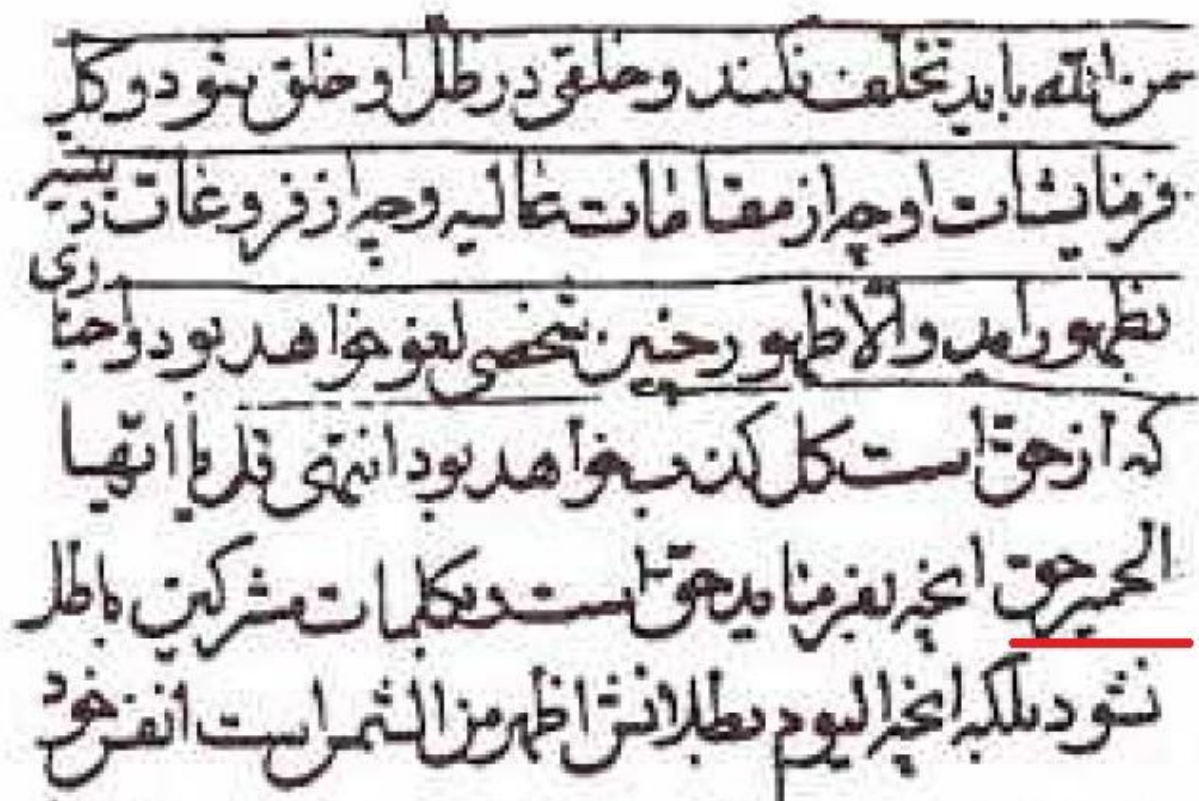 من الله باید تخلف نکند و خلقی در ظل او خلق شود و کل
فرمایشات او چه از مقامات عالیه و چه از فروعات دی
بظهور اید و الا ظهور چنین شخصی لغو خواهد بود و اخبا ری
که از حق است کل کذب خواهد بود انتهی قل یا ایها
الحمیر حق انچه بفرماید حق است و بکلمات مشرکین باطل
نشود بلکه انچه الیوم بطلانش اظهر من الشمس است انفس خود